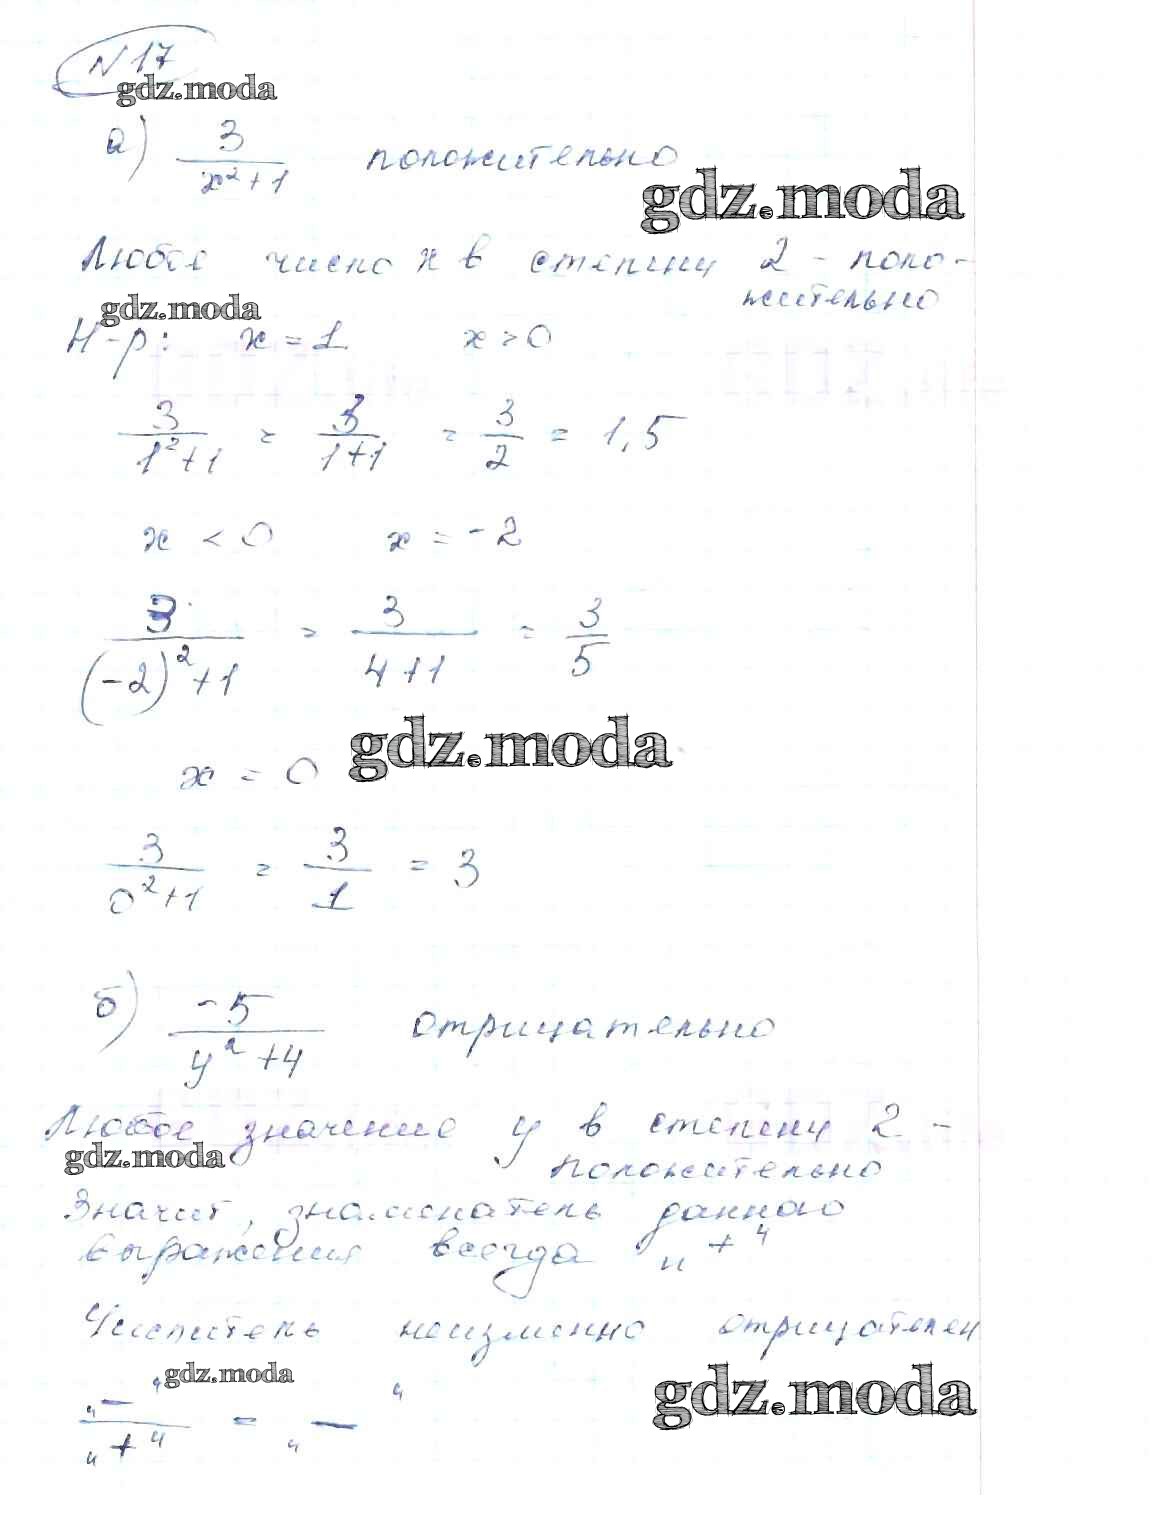 №17
gdz.moda
а) 3/(x²+1) положительно
gdz.moda
Любое число x в степени 2 - поло-
жительно
gdz.moda
Н-р: x = 1 x > 0
3/(1²+1) = 3/(1+1) = 3/2 = 1,5
x < 0 x = -2
3/((-2)²+1) = 3/(4+1) = 3/5
gdz.moda
x = 0
3/(0²+1) = 3/1 = 3
б) -5/(y²+4) отрицательно
Любое значение y в степени 2 -
gdz.moda
положительно
Значит, знаменатель данного
выражения всегда "+"
Числитель неизменно отрицателен
gdz.moda
gdz.moda
"-"/"+" = "-"